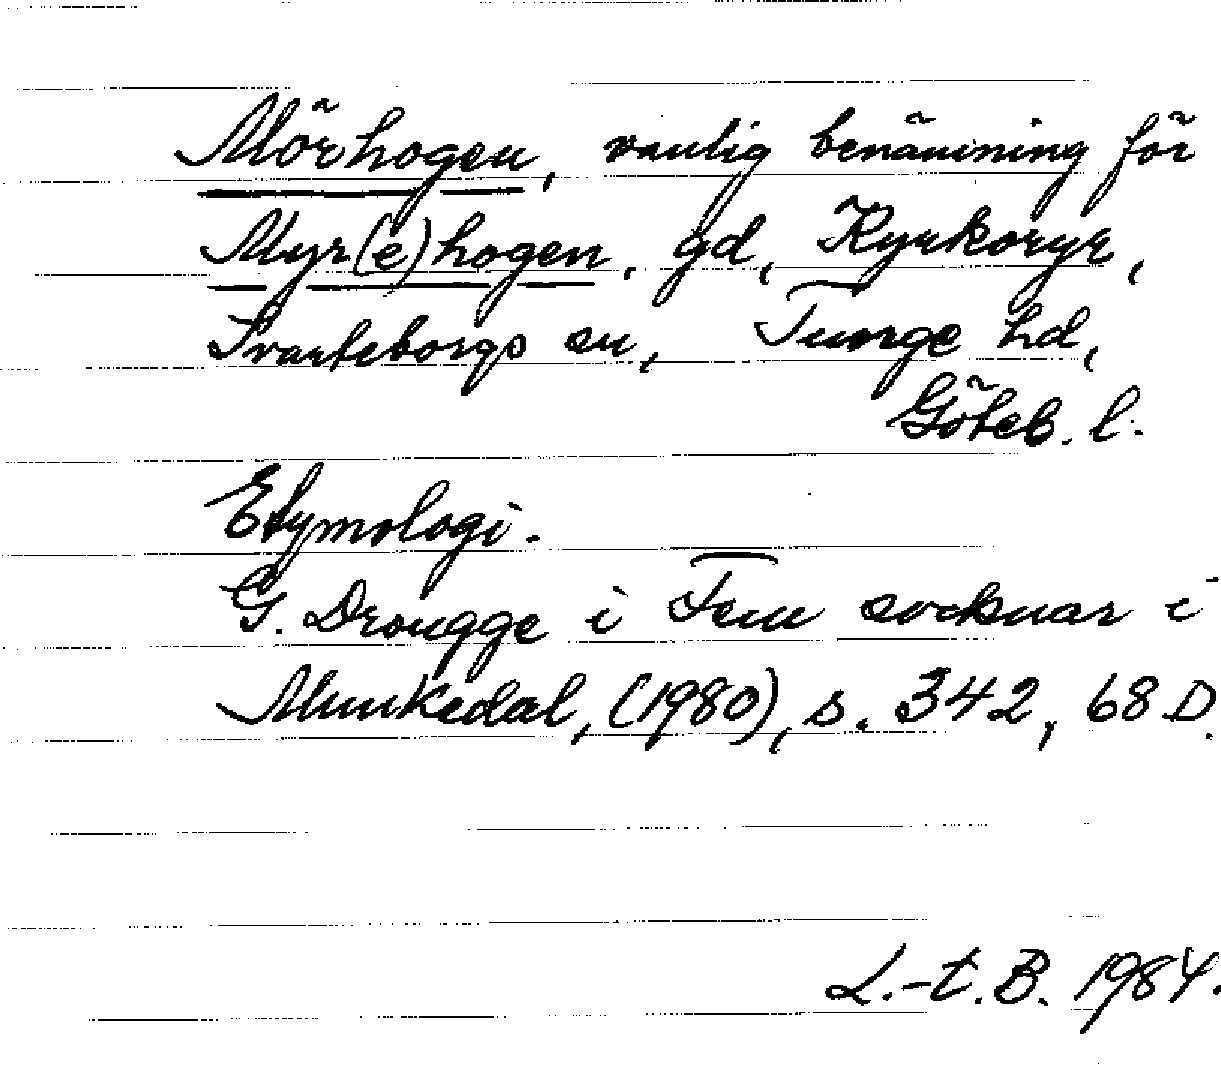 Mörhogen, vanlig benämning för
Myr(e)hogen, gd, Kyrkoryr,
Svarteborgs sn, Tunge hd,
Göteb. l.
Etymologi.
G. Drougge i Fem socknar i
Munkedal, (1980), s. 342, 68 D.
L.-t. B. 1984.